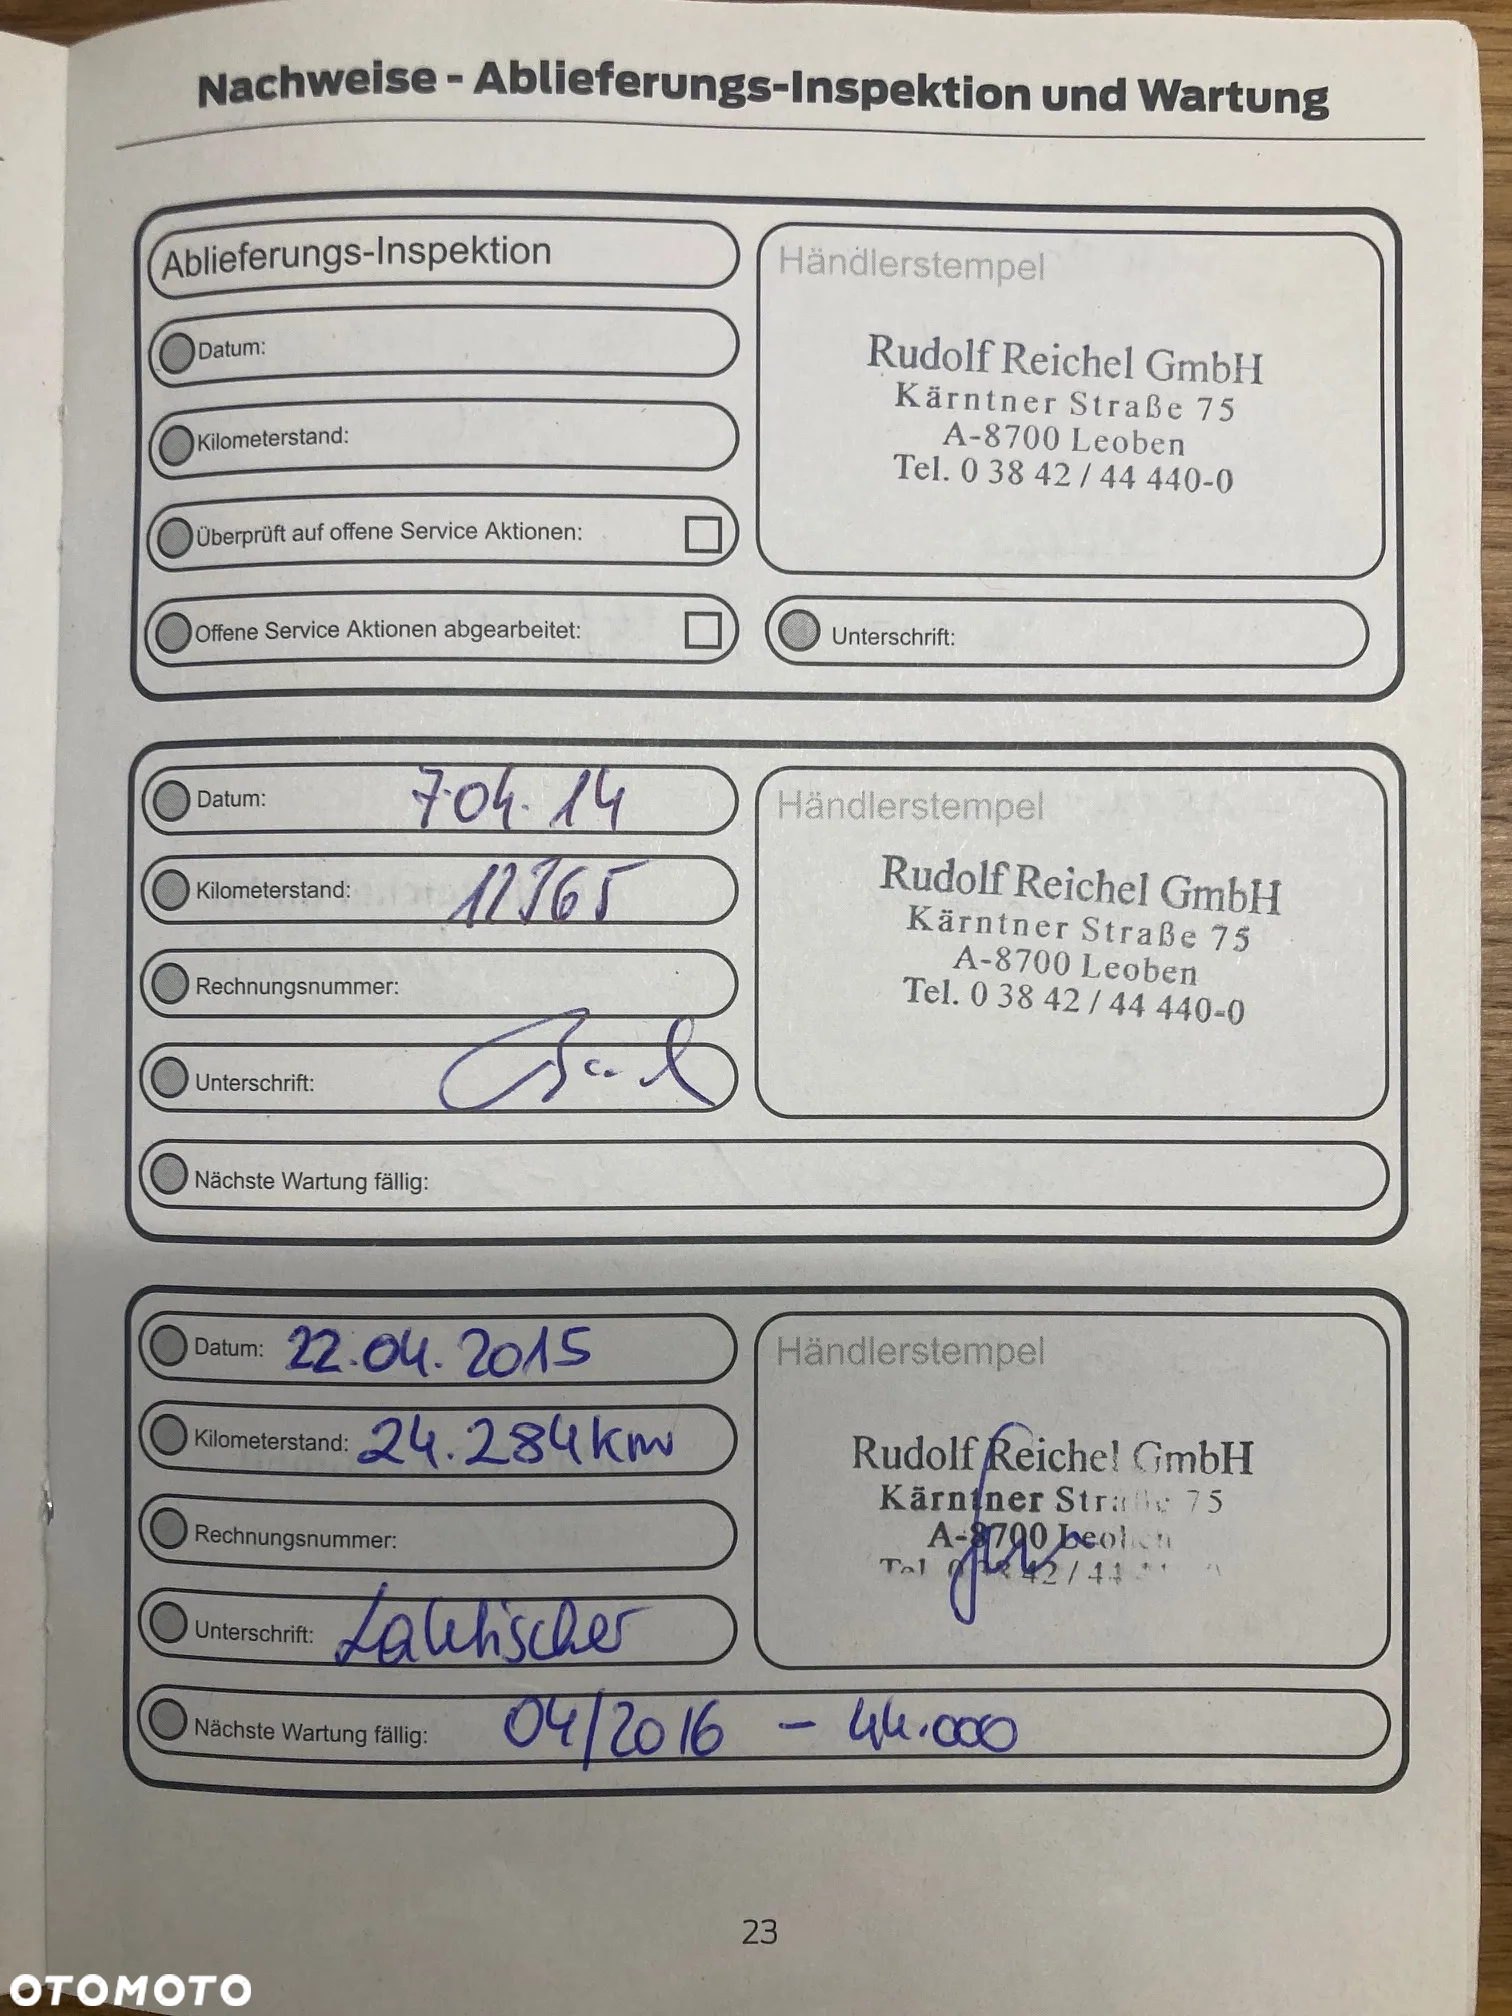 Nachweise - Ablieferungs-Inspektion und Wartung
Ablieferungs-Inspektion
Datum:
Kilometerstand:
Überprüft auf offene Service Aktionen:
Offene Service Aktionen abgearbeitet:
Händlerstempel
Rudolf Reichel GmbH
Kärntner Straße 75
A-8700 Leoben
Tel. 0 38 42 / 44 440-0
Unterschrift:
Datum: 7.04.14
Kilometerstand:
Rechnungsnummer:
Unterschrift:
Händlerstempel
Rudolf Reichel GmbH
Kärntner Straße 75
A-8700 Leoben
Tel. 0 38 42 / 44 440-0
Nächste Wartung fällig:
Datum: 22.04.2015
Kilometerstand: 24.284km
Rechnungsnummer:
Unterschrift:
Händlerstempel
Rudolf Reichel GmbH
Kärntner Straße 75
A-8700 Leoben
Nächste Wartung fällig: 04/2016 - 44.000
23
OTOMOTO